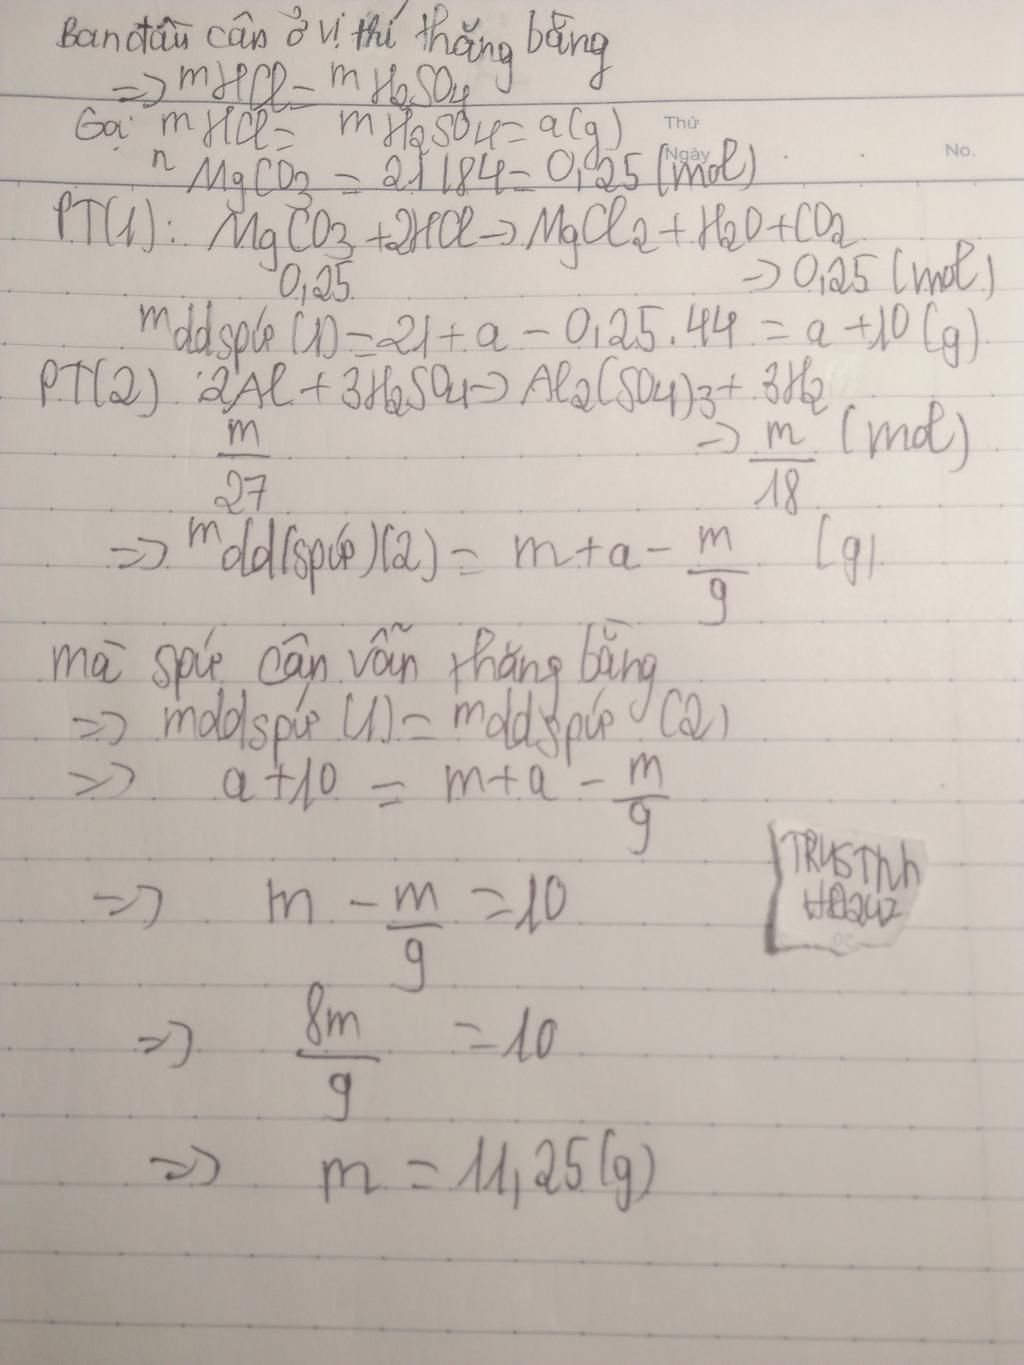 Ban đầu cân ở vị thí thăng bằng
=> mHCl = mH2SO4
Gọi mHCl = mH2SO4 = a(g)
Thứ
Ngày
No.
nMgCO3 = 21/84 = 0,25 (mol)
PT(1): MgCO3 + 2HCl -> MgCl2 + H2O + CO2
0,25 -> 0,25 (mol)
mddspứ (1) = 21 + a - 0,25.44 = a + 10 (g)
PT(2): 2Al + 3H2SO4 -> Al2(SO4)3 + 3H2
m/27 -> m/18 (mol)
=> mdd(spứ)(2) = m + a - m/9 (g)
mà spứ cân vẫn thăng bằng
=> mddspứ (1) = mddspứ (2)
=> a + 10 = m + a - m/9
=> m - m/9 = 10
=> 8m/9 = 10
=> m = 11,25(g)